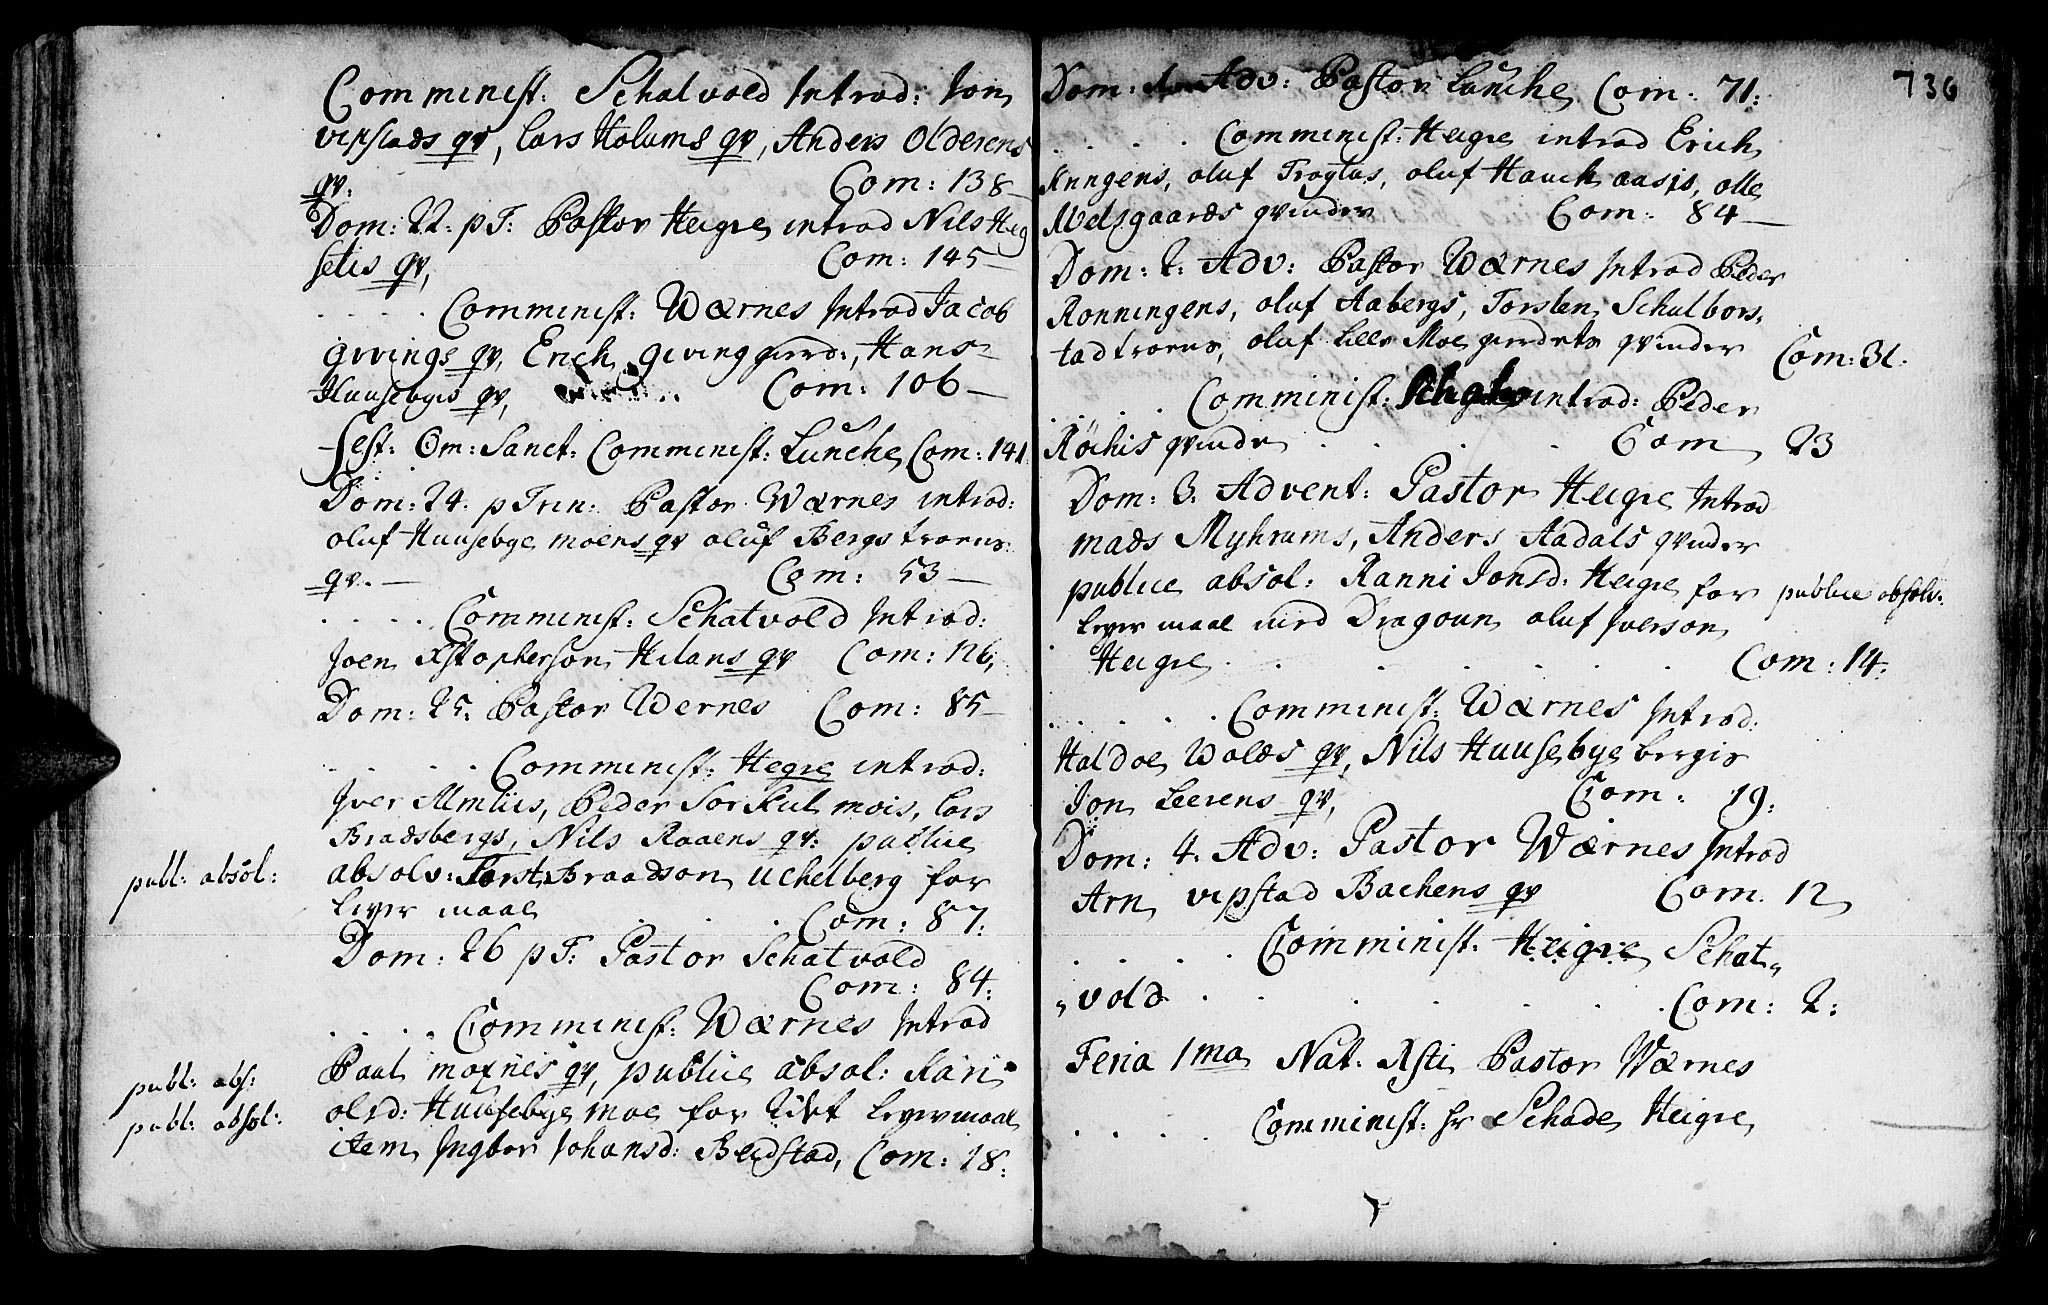 Comminist: Schatvold Introd: Jon
vipstads qv, Lars Holums qv, Anders Olderens
qv. Com: 138
Dom: 22. p T: Pastor Heigre introd Nils Heg
setis qv, Com: 145
. . . . Comminist: Wærnes Introd Jacob
Givings qv, Erich Giving gierd:, Hans
Huusebyis qv, Com: 106
Fest: Om: Sanct: Comminist: Lunche Com: 141
Dom: 24. p Trin: Pastor Wærnes introd:
oluf Huusebye moens qv oluf Bergs trøens
qv. Com: 53
. . . . Comminist: Schatvold Introd:
Joen Xstopherson Hilans qv Com: 126,
Dom: 25. Pastor Wernes Com: 85
. . . . . Comminist: Hegre introd:
Iver Almlies, Peder Sorskulmois, Lars
Bradsbergs, Nils Raaens qv: publice
publ: absol: absolv: Torst. Braadson Uchelberg for
Leyer maal . . . Com: 87:
Dom: 26 p T: Pastor Schatvold
Com: 84:
. . . . Comminist: Wærnes Introd
publ: abs: Paul moxnes qv, publice absol: Kari
publ: absol: olsd: Huusebye moe for 2det Leyermaal
item Ingbor Johansd: Beidstad, Com: 18:
736
Dom: Adv: Pastor Lunche Com: 71:
. . . . Comminist: Heigre introd Erich
Anngens, oluf Trogtus, oluf Hauch aasis, olle
Welsgaards qvinder Com: 84
Dom: 2: Adv: Pastor Wærnes Introd Peder
Ronningens, oluf Aabergs, Torsten Schulbors,
tad trøens, oluf Lille Moe gierdets qvinder Com: 31.
. . . . Comminist: introd: Peder
Røchis qvinde . . . Com 23
Dom: 3. Advent: Pastor Heigre Introd
mads Myhrums, Anders Aadals qvinder
publice absol: Ranni Jonsd: Heigre for publice absolv.
Leyer maal med Dragoun oluf Iverson
Heigre . . . . . . Com: 14.
. . . . . Comminist: Wærnes Introd:
Haldoe Wolds qv, Nils Huusebye bergis
Jon Leerens qv, Com: 19:
Dom: 4. Adv: Pastor Wærnes Introd
Arn vipstad Bachens qv Com. 12
. . . . Comminist: Heigre Schat„
„vold . . . . . . Com: 2:
Feria 1ma Nat. Xsti Pastor Wærnes
. . . . Comminist: Hr Schade Heigre